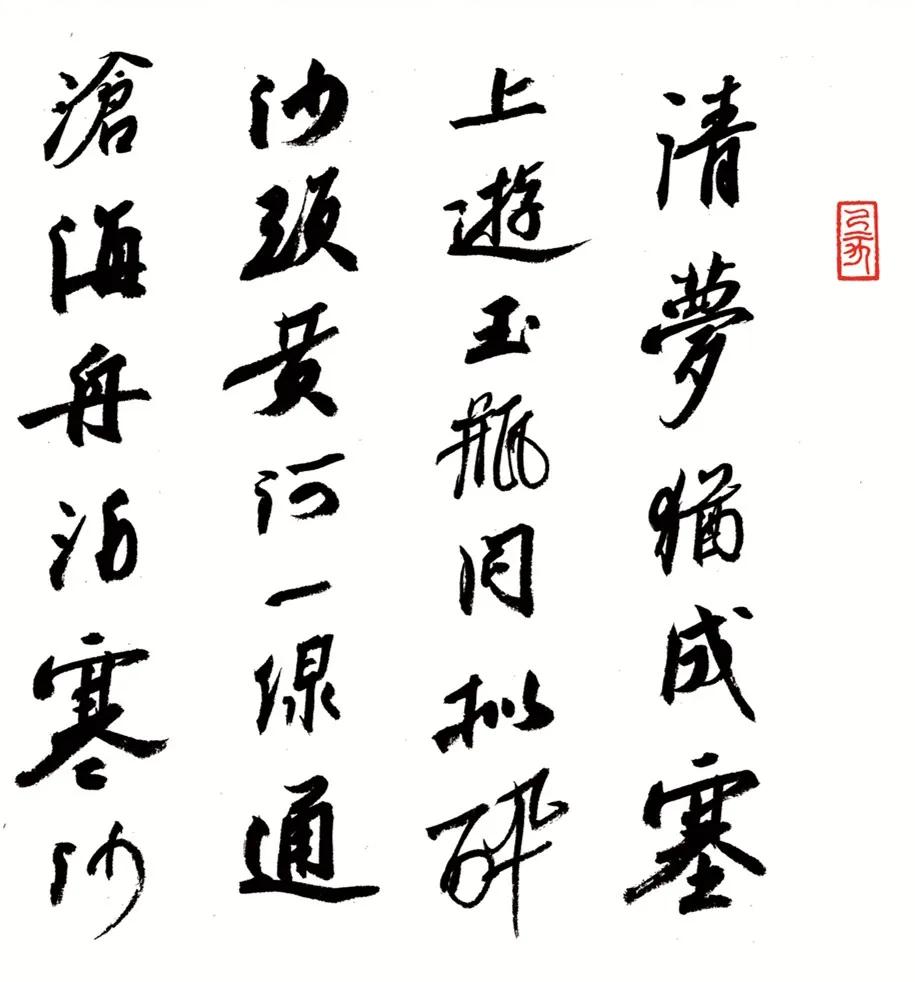 清夢猶成塞
上遊玉瓶同拟醉
沙頭黄河一線通
滄海舟泊寒沙